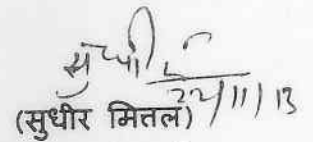 सुधीर
22/11/13
(सुधीर मित्तल)